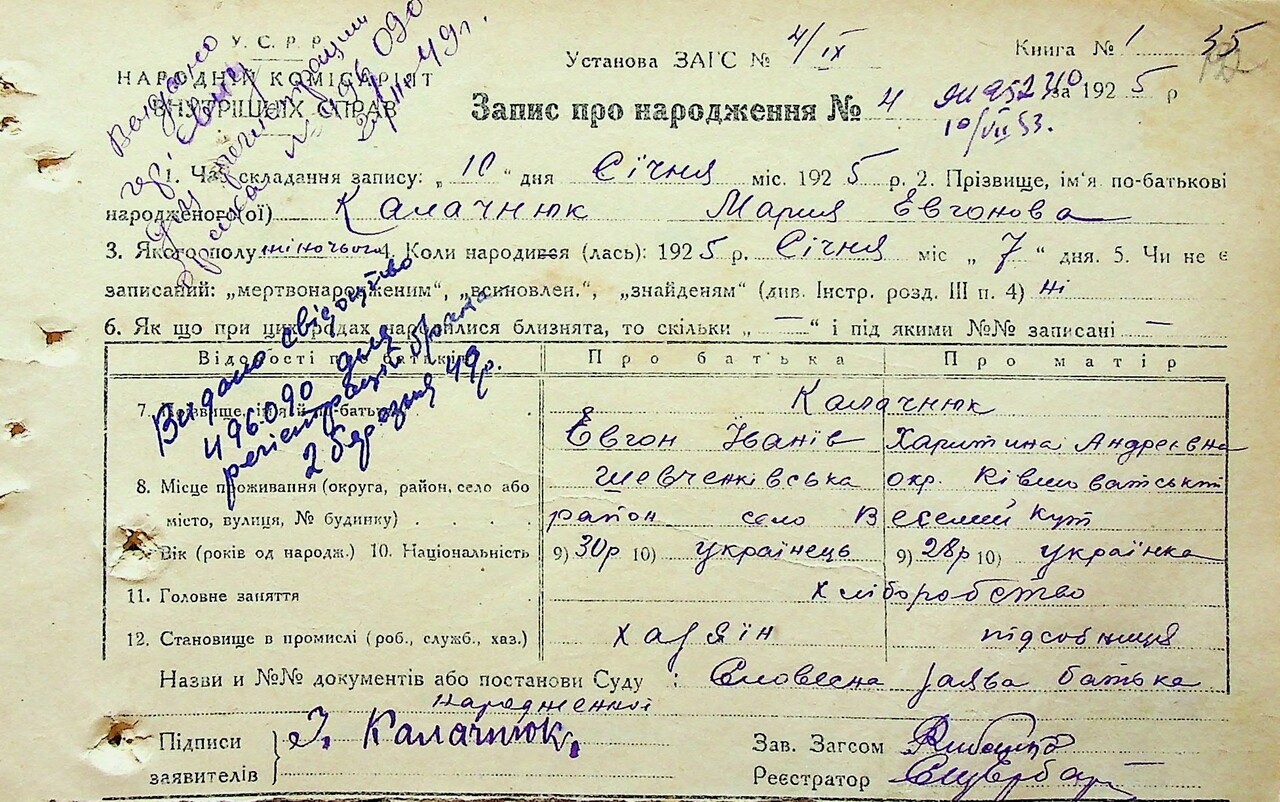 У. С. Р. Р.
НАРОДНІЙ КОМІСАРІЯТ
ВНУТРІШНІХ СПРАВ
Установа ЗАГС № 4/IX
Книга № 1 35
Запис про народження № 4 за 1925 р
10/VII 53.
Видано
№ 496 090
2/III-49 г.
1. Час складання запису: „10" дня Січня міс. 1925 р. 2. Прізвище, ім'я по-батькові
народженого(ої) Калачнюк Мария Евгонова
3. Якого полу жіночього 4. Коли народився (лась): 1925 р. Січня міс „7" дня. 5. Чи не є
записаний: „мертвонародженим", „всиновлен.", „знайденям" (див. Інстр. розд. III п. 4) ні
6. Як що при цих родах народилися близнята, то скільки „—" і під якими №№ записані —
Відомості про батьків Про батька Про матір
7. Прізвище, ім'я й по-батькові . Калачнюк
Евгон Іванів Харитина Андреєвна
8. Місце проживання (округа, район, село або Шевченківська окр.
місто, вулиця, № будинку) . . . . район село Веселий Кут
Вік (років од народж.) 10. Національність 9) 30р 10) українець 9) 28р 10) українка
11. Головне заняття хліборобство
12. Становище в промислі (роб., служб., хаз.) хазяїн підсобниця
Видано свідоцтво
496090 для
регістрації брака
2 березня 49р.
Назви и №№ документів або постанови Суду : Словесна заява батька
народженної
Підписи
заявителів } Калачнюк
Зав. Загсом
Реєстратор